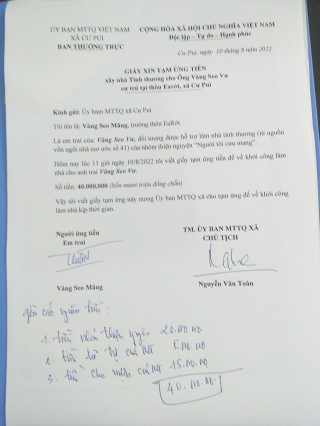 ỦY BAN MTTQ VIỆT NAM
XÃ CƯ PUI
BAN THƯỜNG TRỰC
CỘNG HÒA XÃ HỘI CHỦ NGHĨA VIỆT NAM
Độc lập - Tự do - Hạnh phúc
Cư Pui, ngày 10 tháng 8 năm 2022
GIẤY XIN TẠM ỨNG TIỀN
xây nhà Tình thương cho Ông Vàng Seo Vư
cư trú tại thôn Earớt, xã Cư Pui
Kính gửi: Ủy ban MTTQ xã Cư Pui
Tôi tên là: Vàng Seo Măng, trưởng thôn EaRớt
Là em trai của: Vàng Seo Vư, đối tượng được hỗ trợ làm nhà tình thương (từ nguồn
vốn ngôi nhà mơ ước số 41) của nhóm thiện nguyện "Người tôi cưu mang".
Hôm nay lúc 11 giờ ngày 10/8/2022 tôi viết giấy tạm ứng tiền để về khởi công làm
nhà cho anh trai Vàng Seo Vư.
Số tiền: 40.000.000 (bốn mươi triệu đồng chẵn)
Vậy tôi viết giấy tạm ứng này mong Ủy ban MTTQ xã cho tạm ứng tiền để về khởi công
làm nhà kịp thời gian.
Người ứng tiền
Em trai
Vàng Seo Măng
TM. ỦY BAN MTTQ XÃ
CHỦ TỊCH
Nguyễn Văn Toàn
gồm các nguồn tiền:
1. tiền nhóm thiện nguyện 20.000.000
2. tiền 5.000.000
3. tiền cho 15.000.000
40.000.000.